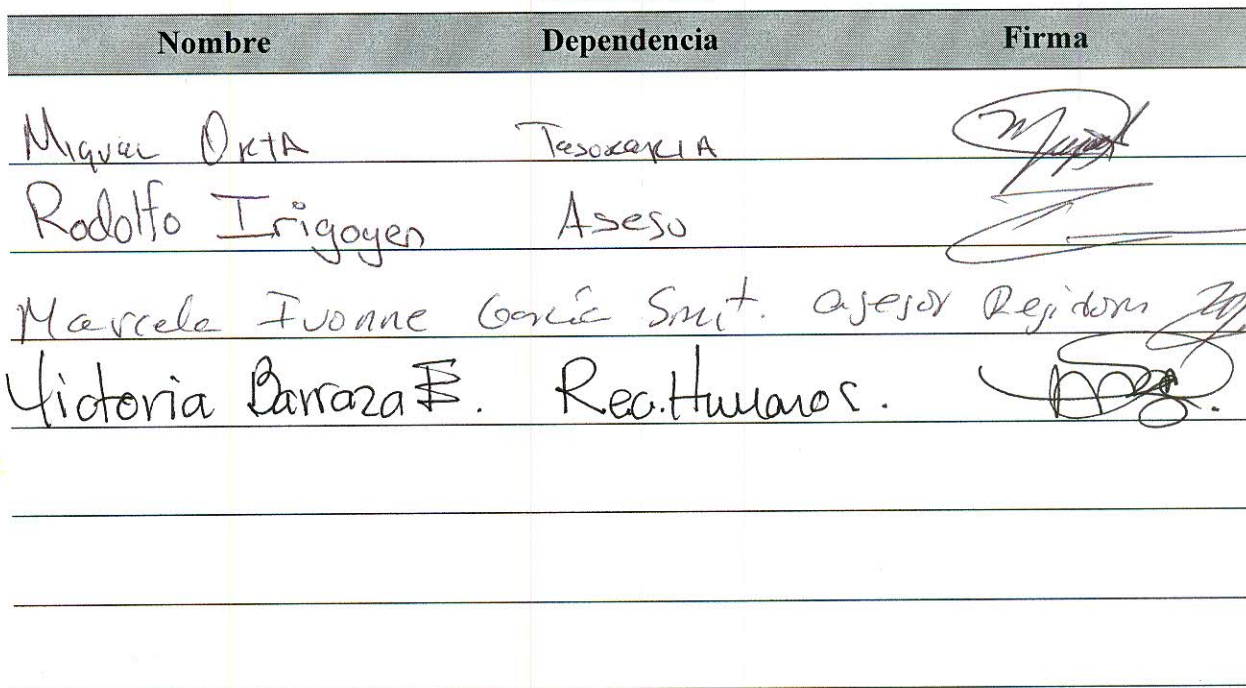 Nombre Dependencia Firma
Miguel Orta Tesoreria
Rodolfo Irigoyen Aseso
Marcela Ivonne García Smit. asesor
Victoria Barraza B. Rec. Humanos.